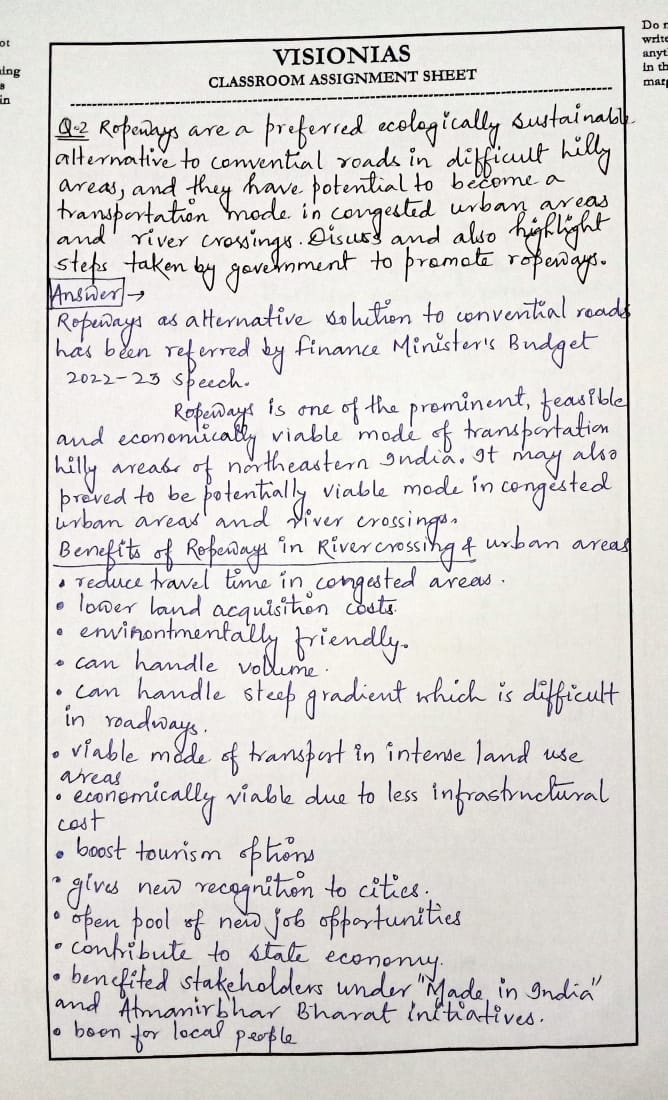 ot
ing
s
in
Do n
write
anyt
in th
març
VISIONIAS
CLASSROOM ASSIGNMENT SHEET
Q-2 Ropeways are a preferred ecologically sustainable
alternative to convential roads in difficult hilly
areas, and they have potential to become a
transportation mode in congested urban areas
and river crossings. Disuss and also highlight
steps taken by government to promote ropeways.
Answer →
Ropeways as alternative solution to convential roads
has been referred by finance Minister's Budget
2022-23 speech.
Ropeways is one of the prominent, feasible
and economically viable mode of transportation
hilly areas of northeastern India. It may also
proved to be potentially viable mode in congested
urban areas and river crossings.
Benefits of Ropeways in Rivercrossing & urban areas
• reduce travel time in congested areas.
• lower land acquisition costs.
• environtmentally friendly.
• can handle volume.
• can handle steep gradient which is difficult
in roadways.
• viable mode of transport in intense land use
areas
• economically viable due to less infrastructural
cost
• boost tourism options
• gives new recognition to cities.
• open pool of new job opportunities
• contribute to state economy.
• benefited stakeholders under "Made in India"
and Atmanirbhar Bharat initiatives.
• boon for local people